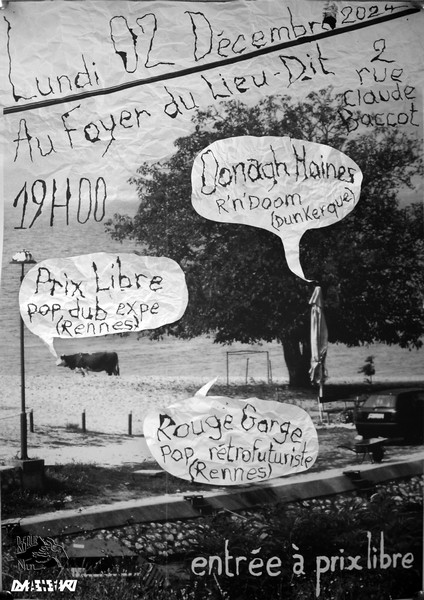 Lundi 02 Décembre 2024
Au Foyer du Lieu-Dit
2
rue
Claude
Baccot
19H00
Oonagh Haines
R'n'Doom
(Dunkerque)
Prix Libre
pop, dub expe
(Rennes)
Rouge Gorge
Pop rétrofuturiste
(Rennes)
entrée à prix libre